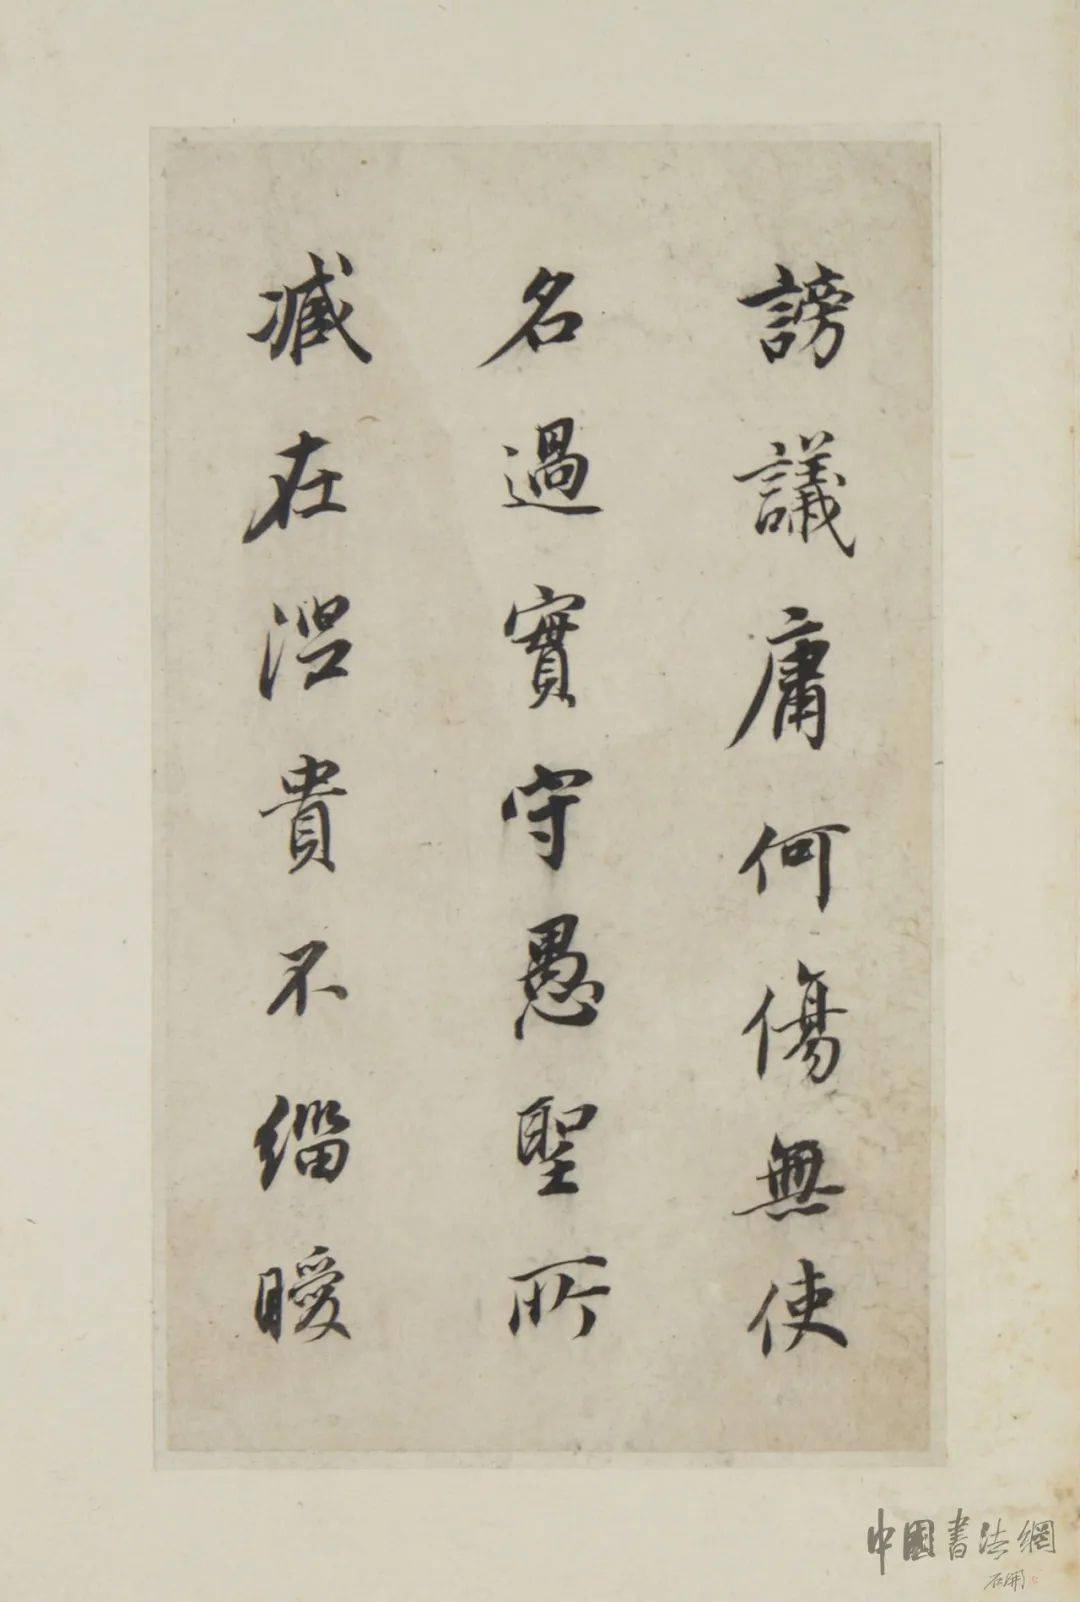 謗議庸何傷無使
名過實守愚聖所
臧在涅貴不緇曖
中國書法網
石開